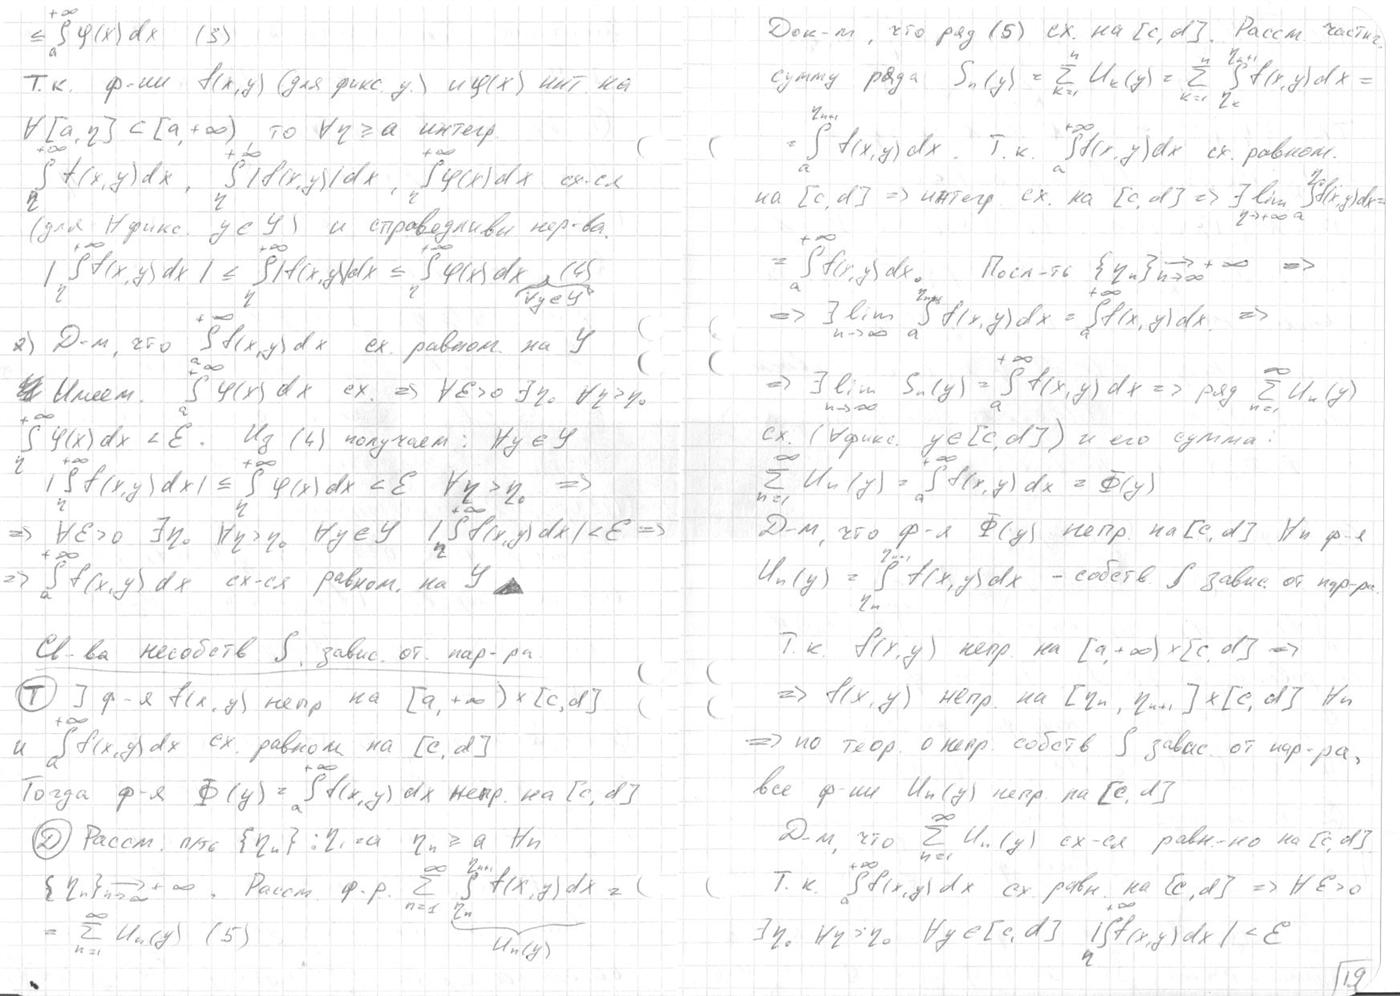 ≤ ∫_a^{+∞} φ(x)dx (3)
Т.к. ф-ии f(x,y) (для фикс. y) и φ(x) инт на
∀[a,η] ⊂ [a,+∞), то ∀η ≥ a интегр.
∫_η^{+∞} f(x,y)dx, ∫_η^{+∞} |f(x,y)|dx, ∫_η^{+∞} φ(x)dx сх-ся
(для ∀фикс. y∈Y) и справедливы нер-ва.
|∫_η^{+∞} f(x,y)dx| ≤ ∫_η^{+∞} |f(x,y)|dx ≤ ∫_η^{+∞} φ(x)dx (4)
∀y∈Y
2) Д-м, что ∫_a^{+∞} f(x,y)dx сх. равном. на Y
Имеем. ∫_a^{+∞} φ(x)dx сх. => ∀ε>0 ∃η₀ ∀η>η₀
∫_η^{+∞} φ(x)dx < ε. Из (4) получаем: ∀y∈Y
|∫_η^{+∞} f(x,y)dx| ≤ ∫_η^{+∞} φ(x)dx < ε ∀η>η₀ =>
=> ∀ε>0 ∃η₀ ∀η>η₀ ∀y∈Y |∫_η^{+∞} f(x,y)dx| < ε =>
=> ∫_a^{+∞} f(x,y)dx сх-ся равном. на Y ▲
Св-ва несобств ∫, завис. от. пар-ра.
Ⓣ ] ф-я f(x,y) непр на [a,+∞)×[c,d]
и ∫_a^{+∞} f(x,y)dx сх. равном на [c,d]
Тогда ф-я Φ(y) = ∫_a^{+∞} f(x,y)dx непр. на [c,d]
Ⓓ Рассм. п-ть {ηₙ}: η₁=a ηₙ ≥ a ∀n
{ηₙ} →_{n→∞} +∞. Рассм. ф.р. ∑_{n=1}^{∞} ∫_{ηₙ}^{ηₙ₊₁} f(x,y)dx =
Uₙ(y)
= ∑_{n=1}^{∞} Uₙ(y) (5)
Док-м, что ряд (5) сх. на [c,d]. Рассм частич.
сумму ряда Sₙ(y) = ∑_{k=1}^{n} Uₖ(y) = ∑_{k=1}^{n} ∫_{ηₖ}^{ηₙ₊₁} f(x,y)dx =
= ∫_a^{ηₙ₊₁} f(x,y)dx. Т.к. ∫_a^{+∞} f(x,y)dx сх. равном.
на [c,d] => интегр сх. на [c,d] => ∃ lim_{η→+∞} ∫_a^{η} f(x,y)dx =
= ∫_a^{+∞} f(x,y)dx. Посл-ть {ηₙ} →_{n→∞} +∞ =>
=> ∃ lim_{n→∞} ∫_a^{ηₙ₊₁} f(x,y)dx = ∫_a^{+∞} f(x,y)dx. =>
=> ∃ lim_{n→∞} Sₙ(y) = ∫_a^{+∞} f(x,y)dx => ряд ∑_{n=1}^{∞} Uₙ(y)
сх. (∀фикс. y∈[c,d]) и его сумма:
∑_{n=1}^{∞} Uₙ(y) = ∫_a^{+∞} f(x,y)dx = Φ(y)
Д-м, что ф-я Φ(y) непр. на [c,d] ∀n ф-я
Uₙ(y) = ∫_{ηₙ}^{ηₙ₊₁} f(x,y)dx - собств. ∫ завис. от пар-ра.
Т.к. f(x,y) непр. на [a,+∞)×[c,d] =>
=> f(x,y) непр. на [ηₙ, ηₙ₊₁]×[c,d] ∀n
=> по теор. о непр. собств ∫ завис. от пар-ра,
все ф-ии Uₙ(y) непр. на [c,d]
Д-м, что ∑_{n=1}^{∞} Uₙ(y) сх-ся равн-но на [c,d]
Т.к. ∫_a^{+∞} f(x,y)dx сх. равн. на [c,d] => ∀ε>0
∃η₀ ∀η>η₀ ∀y∈[c,d] |∫_η^{+∞} f(x,y)dx| < ε
19